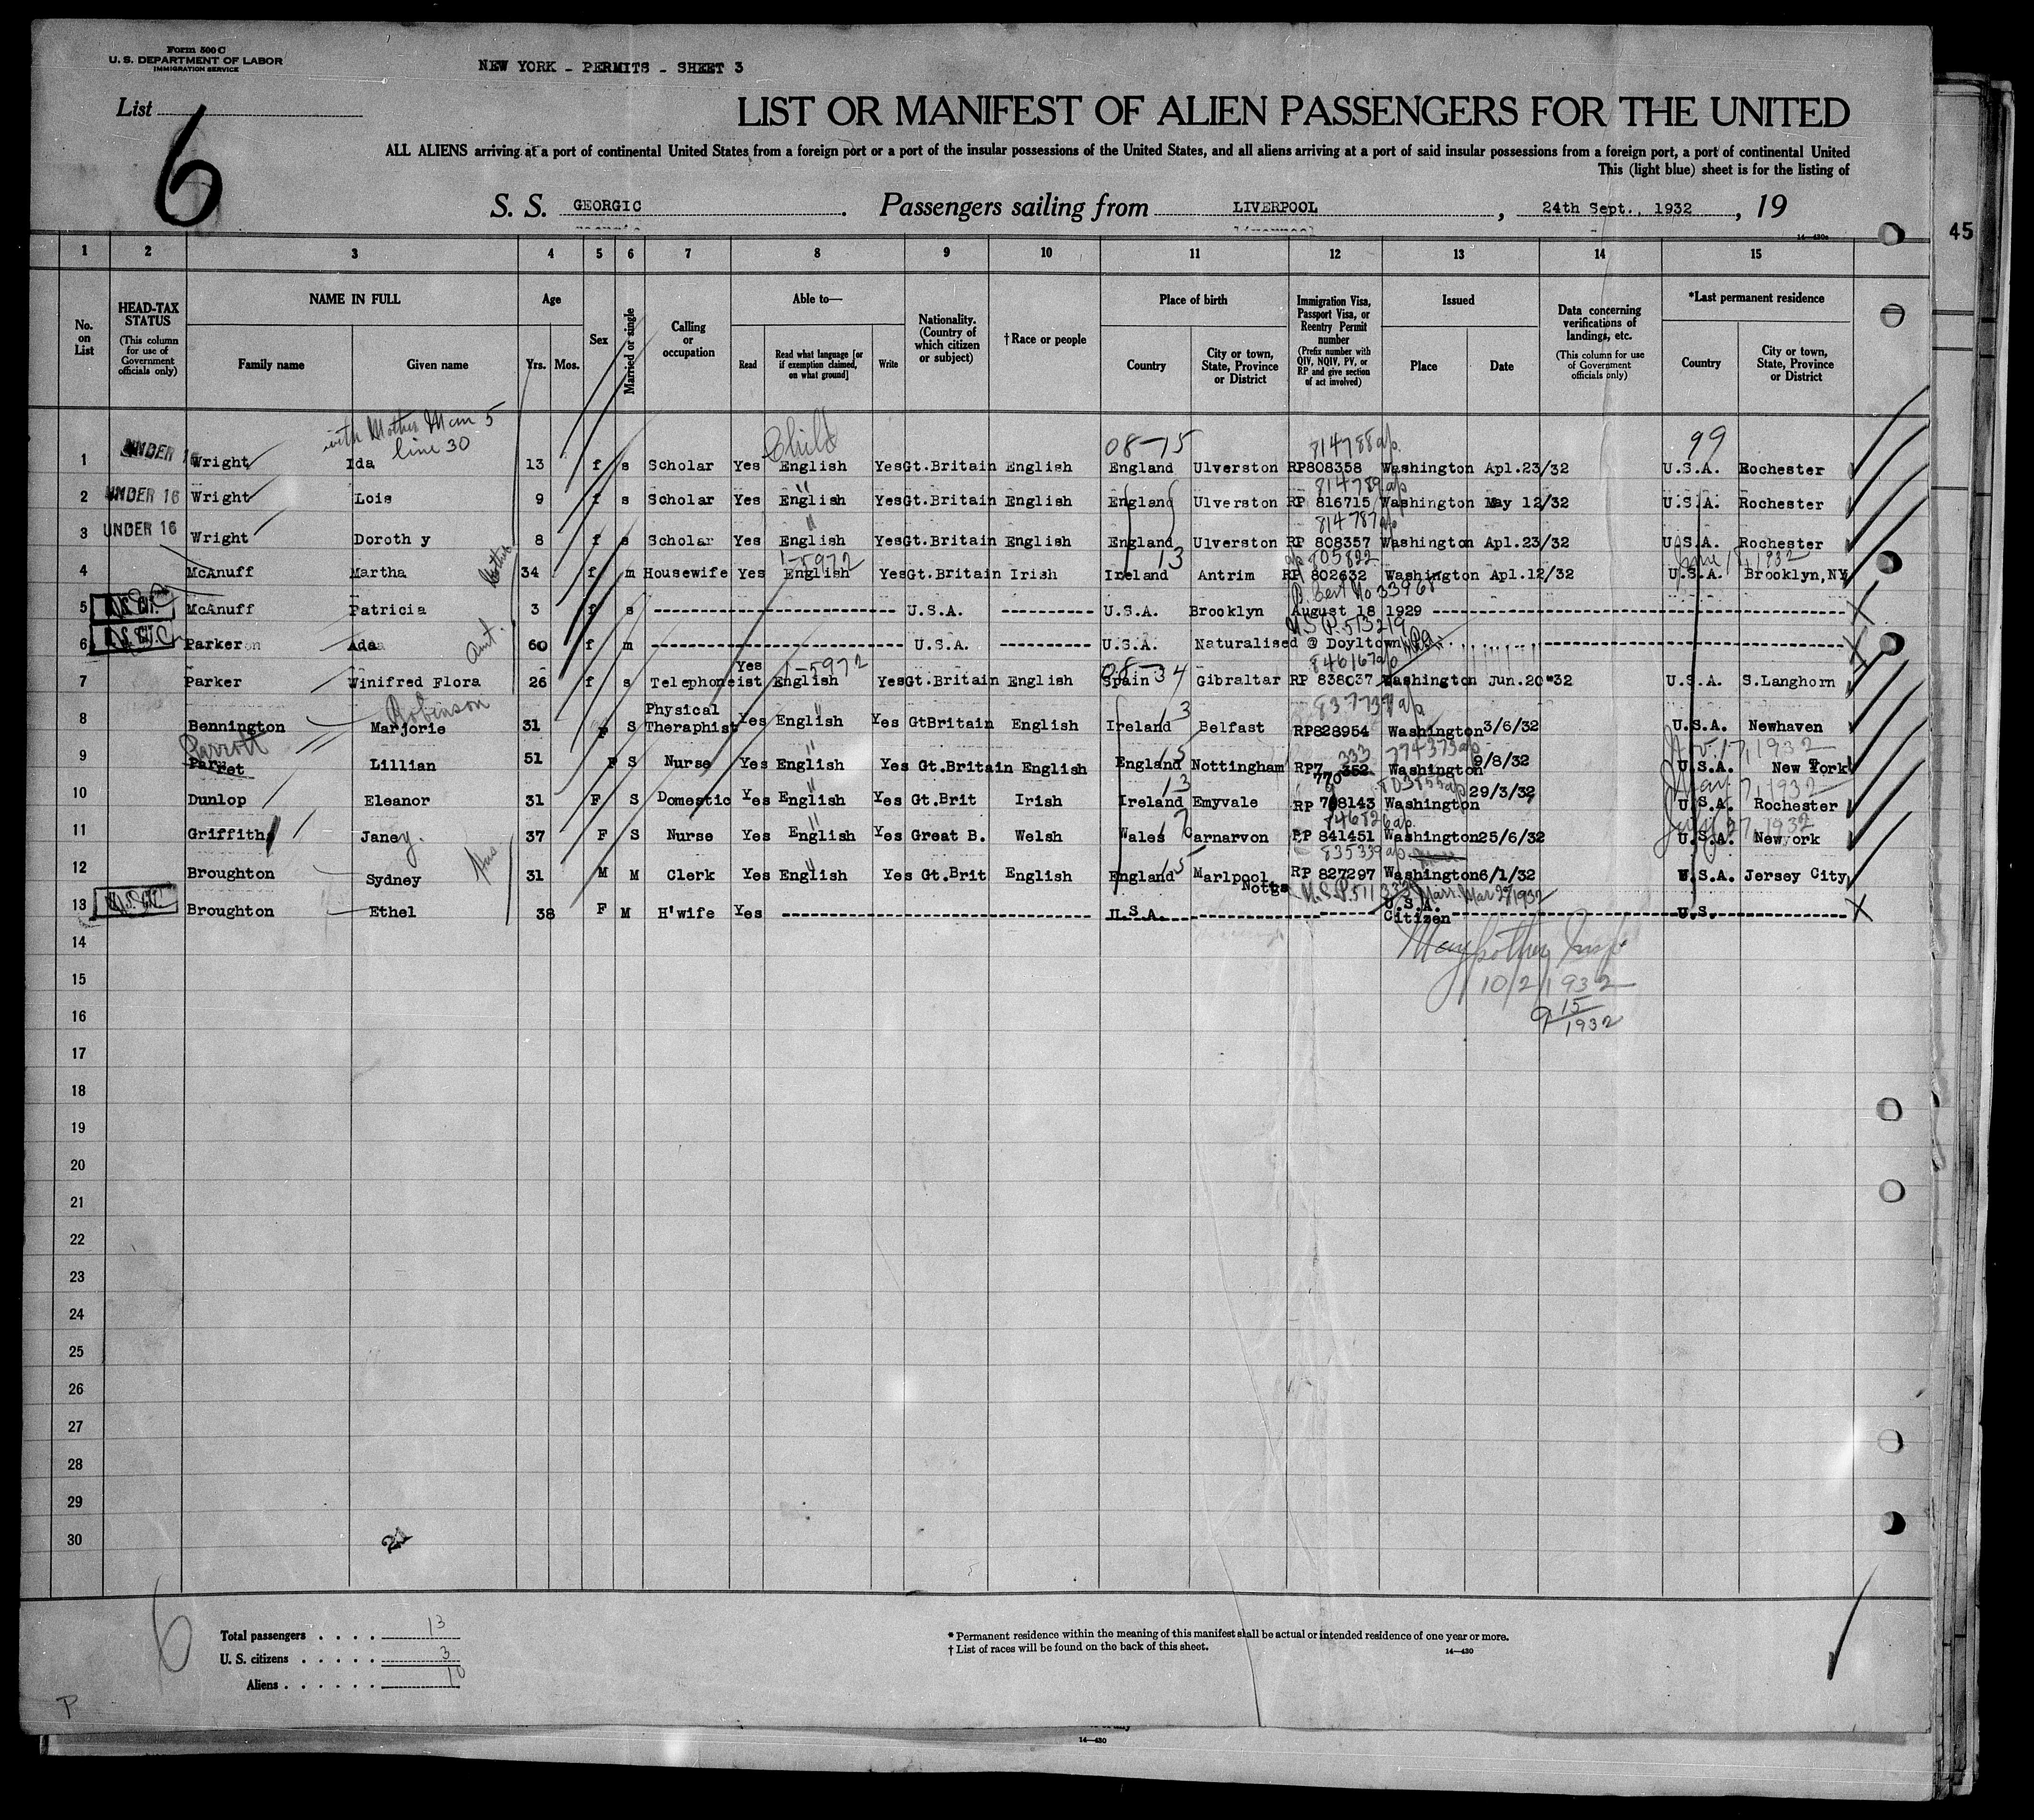 Form 500 C
U. S. DEPARTMENT OF LABOR
IMMIGRATION SERVICE
NEW YORK - PERMITS - SHEET 3
List
6
LIST OR MANIFEST OF ALIEN PASSENGERS FOR THE UNITED
ALL ALIENS arriving at a port of continental United States from a foreign port or a port of the insular possessions of the United States, and all aliens arriving at a port of said insular possessions from a foreign port, a port of continental United
This (light blue) sheet is for the listing of
S. S. GEORGIC. Passengers sailing from LIVERPOOL, 24th Sept., 1932, 19
14-430a
45
1 2 3 4 5 6 7 8 9 10 11 12 13 14 15
No. on List
HEAD-TAX STATUS
(This column for use of Government officials only)
NAME IN FULL
Family name Given name
Age
Yrs. Mos.
Sex
Married or single
Calling or occupation
Able to—
Read
Read what language [or if exemption claimed, on what ground]
Write
Nationality. (Country of which citizen or subject)
†Race or people
Place of birth
Country
City or town, State, Province or District
Immigration Visa, Passport Visa, or Reentry Permit number
(Prefix number with QIV, NQIV, PV, or RP and give section of act involved)
Issued
Place Date
Data concerning verifications of landings, etc.
(This column for use of Government officials only)
*Last permanent residence
Country
City or town, State, Province or District
with Mother Man 5
line 30
Child
08-15 814788 99
1 UNDER 16 Wright Ida 13 f s Scholar Yes English Yes Gt.Britain English England Ulverston RP808358 Washington Apl.23/32 U.S.A. Rochester
814789
2 UNDER 16 Wright Lois 9 f s Scholar Yes English Yes Gt.Britain English England Ulverston RP 816715 Washington May 12/32 U.S.A. Rochester
814787
3 UNDER 16 Wright Doroth y 8 f s Scholar Yes English Yes Gt.Britain English England Ulverston RP 808357 Washington Apl.23/32 U.S.A. Rochester
Mother 1-5972 13 805822
4 McAnuff Martha 34 f m Housewife Yes English Yes Gt.Britain Irish Ireland Antrim RP 802632 Washington Apl.12/32 U.S.A. Brooklyn,NY
B. Cert No 33968
5 U.S. CIT. McAnuff Patricia 3 f s U.S.A. U.S.A. Brooklyn August 18 1929
Aunt. U.S.P. 513219
6 U.S. CIT. Parker Ada 60 f m U.S.A. U.S.A. Naturalised @ Doyltown
1-5972 08-34 846167
7 Parker Winifred Flora 26 f s Telephoneist Yes English Yes Gt.Britain English Spain Gibraltar RP 838037 Washington Jun.20"32 U.S.A. S.Langhorn
Robinson 3 837737
8 Bennington Marjorie 31 F S Physical Theraphist Yes English Yes GtBritain English Ireland Belfast RP828954 Washington 3/6/32 U.S.A. Newhaven
Parrott 5 333 774373
9 Lillian 51 F S Nurse Yes English Yes Gt.Britain English England Nottingham RP7 352 Washington 9/8/32 U.S.A. New York
13 770 803855
10 Dunlop Eleanor 31 F S Domestic Yes English Yes Gt.Brit Irish Ireland Emyvale RP 798143 Washington 29/3/32 U.S.A. Rochester
7 846826 July 27, 1932
11 Griffiths Janey. 37 F S Nurse Yes English Yes Great B. Welsh Wales Carnarvon RP 841451 Washington 25/6/32 U.S.A. New York
15 835339
12 Broughton Sydney 31 M M Clerk Yes English Yes Gt.Brit English England Marlpool Notts RP 827297 Washington 6/1/32 U.S.A. Jersey City
Marr. Mar 28/1932
13 Broughton Ethel 38 F M H'wife Yes U.S.A. U.S.A. Citizen U.S.
14
10/2/1932
15
16
9 15/1932
17
18
19
20
21
22
23
24
25
26
27
28
29
30
6
Total passengers . . . . 13
U. S. citizens . . . . . 3
Aliens . . . . . . 10
* Permanent residence within the meaning of this manifest shall be actual or intended residence of one year or more.
† List of races will be found on the back of this sheet.
14—430
P
14—430